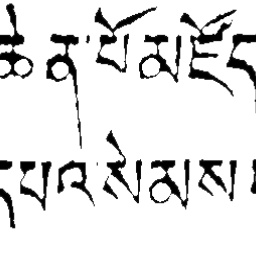 ཆེན་པོ་མཛོད
དཔའ་སེམས